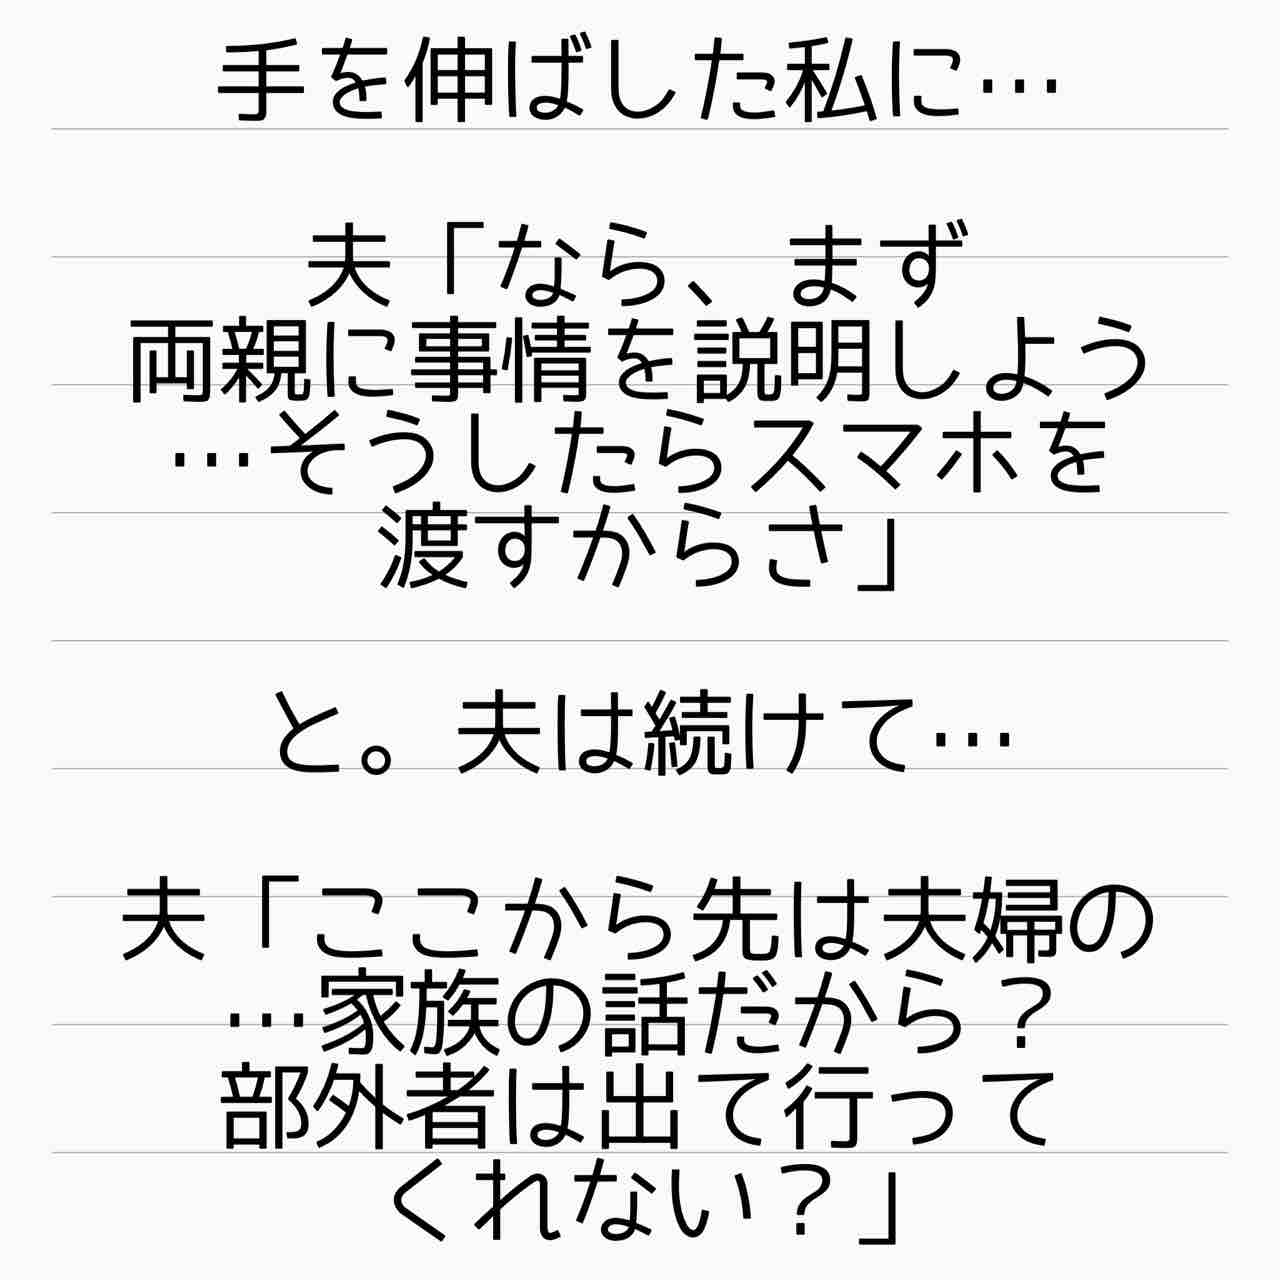 手を伸ばした私に…
夫「なら、まず
両親に事情を説明しよう
…そうしたらスマホを
渡すからさ」
と。夫は続けて…
夫「ここから先は夫婦の
…家族の話だから？
部外者は出て行って
くれない？」